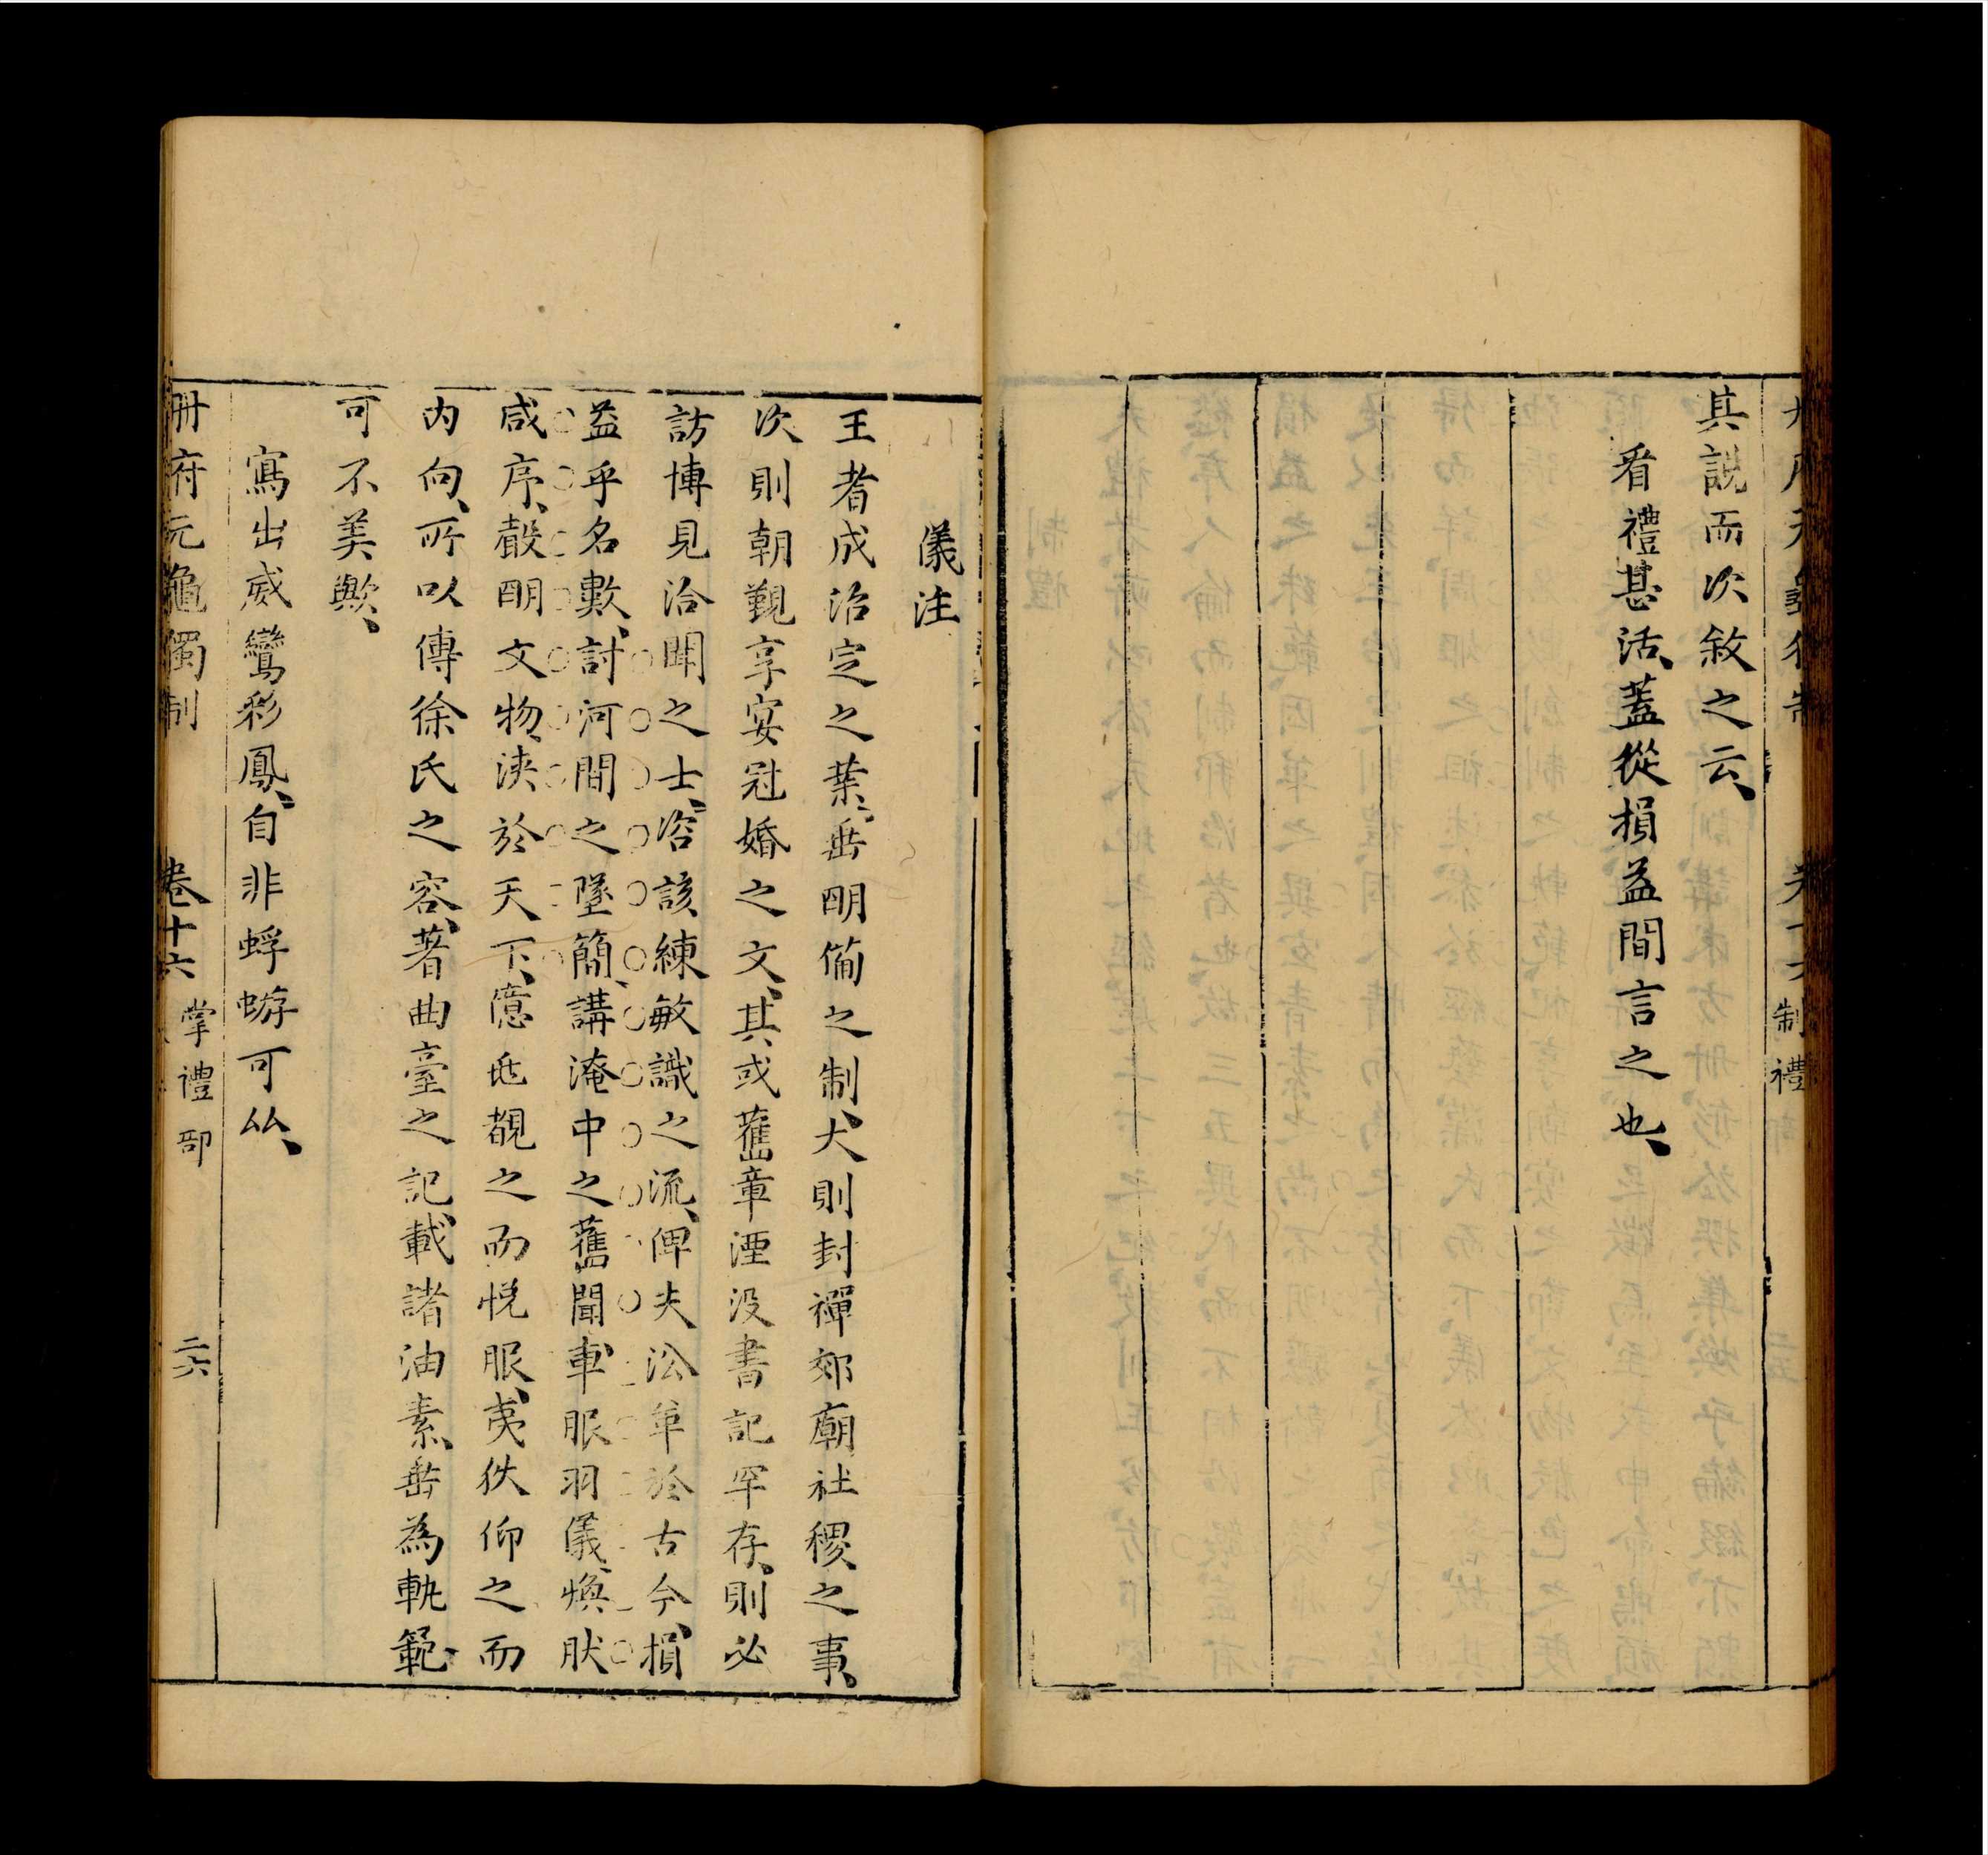 其說而次敘之云、
看禮甚活、蓋從損益間言之也、
制禮
儀注
王者成治定之業、岳明備之制、大則封禪郊廟社稷之事、
次則朝覲享宴冠婚之文、其或舊章湮沒書記罕存、則必
訪博見洽聞之士、咨該練敏識之流、俾夫㳂革於古今、損
益乎名數、討河間之墜簡、講淹中之舊聞車服羽儀、煥肰
咸序、聲明文物、浹於天下、億兆覩之而悅服、夷狄仰之而
內向、所以傳徐氏之容、著曲臺之記、載諸油素、岳為軌範、
可不美歟、
寫出威鸞彩鳳、自非蜉蝣可公、
冊府元龜獨制 卷十六 掌禮部 二六